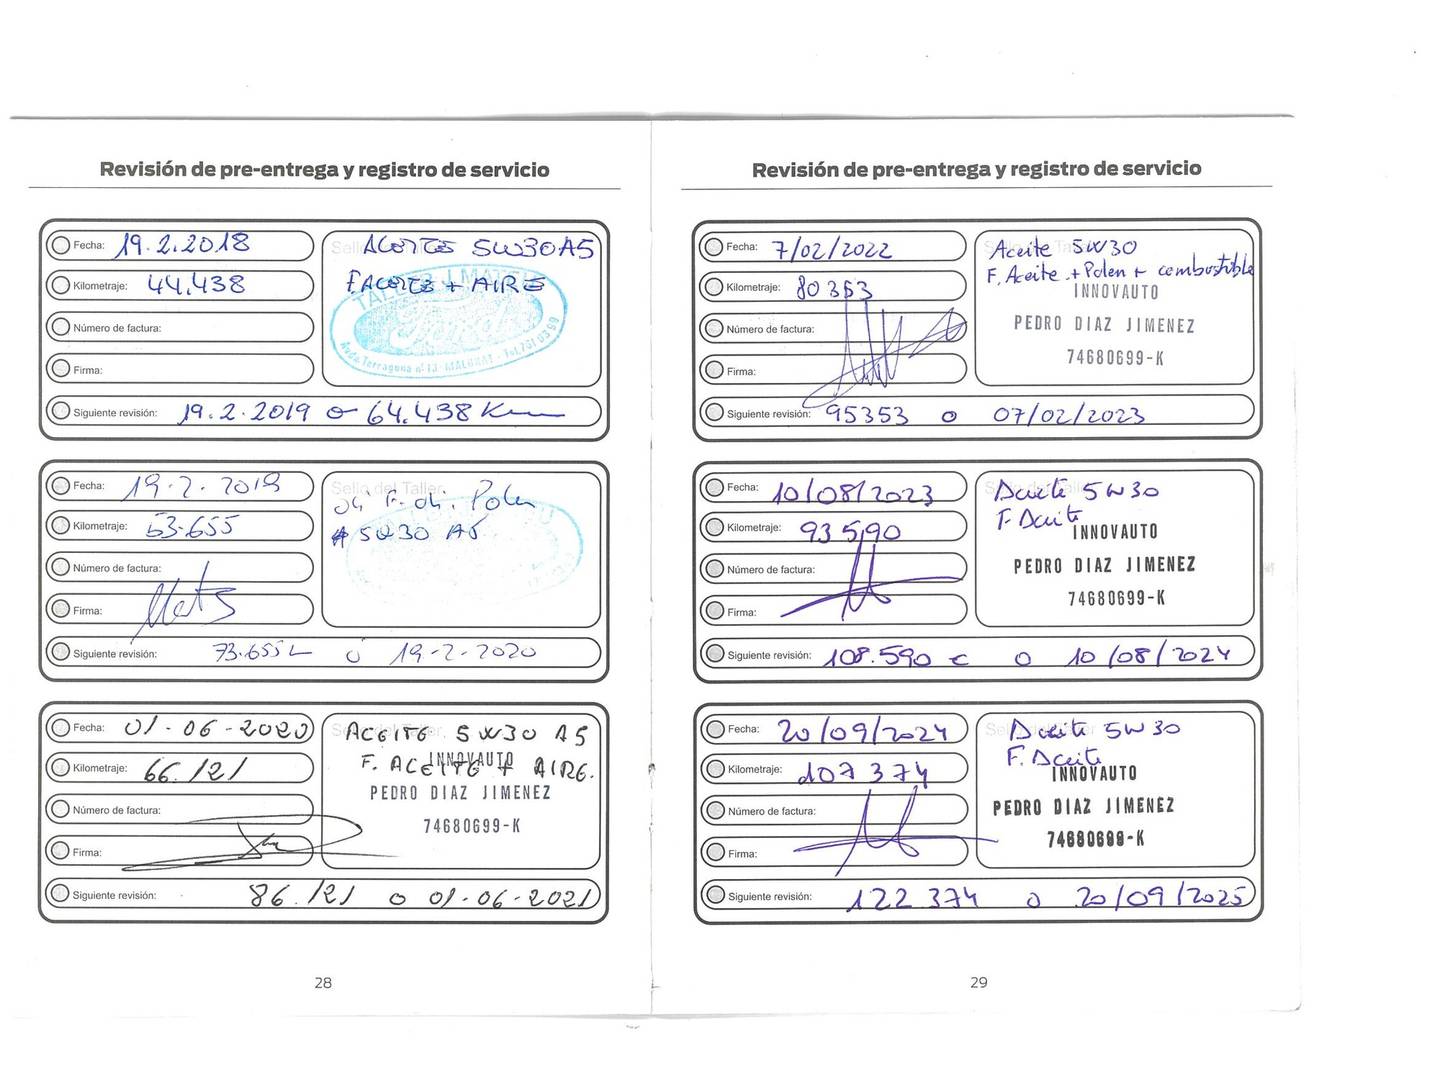 Revisión de pre-entrega y registro de servicio
Fecha: 19.2.2018
Kilometraje: 44.438
Número de factura:
Firma:
Siguiente revisión: 19.2.2019 o 64.438 Km
ACEITES 5W30 A5
F ACEITES + AIRE
Ford
Avda. Tarragona nº 13 - MALGRAT - Tel. 761 03 99
Fecha: 19-2-2019
Kilometraje: 53.655
Número de factura:
Firma:
Siguiente revisión: 73.655 ó 19-2-2020
Sello del Taller
Oli F. oli. Polen
5W30 A5
Fecha: 01-06-2020
Kilometraje: 66.121
Número de factura:
Firma:
Siguiente revisión: 86.121 o 01-06-2021
ACEITE 5W30 A5
F. ACEITE + AIRE.
INNOVAUTO
PEDRO DIAZ JIMENEZ
74680699-K
28
Revisión de pre-entrega y registro de servicio
Fecha: 7/02/2022
Kilometraje: 80353
Número de factura:
Firma:
Siguiente revisión: 95353 o 07/02/2023
Aceite 5W30
F. Aceite + Polen + combustible
INNOVAUTO
PEDRO DIAZ JIMENEZ
74680699-K
Fecha: 10/08/2023
Kilometraje: 93590
Número de factura:
Firma:
Siguiente revisión: 108.590 o 10/08/2024
Aceite 5W30
F. Aceite
INNOVAUTO
PEDRO DIAZ JIMENEZ
74680699-K
Fecha: 20/09/2024
Kilometraje: 107374
Número de factura:
Firma:
Siguiente revisión: 122374 o 20/09/2025
Aceite 5W30
F. Aceite
INNOVAUTO
PEDRO DIAZ JIMENEZ
74680699-K
29